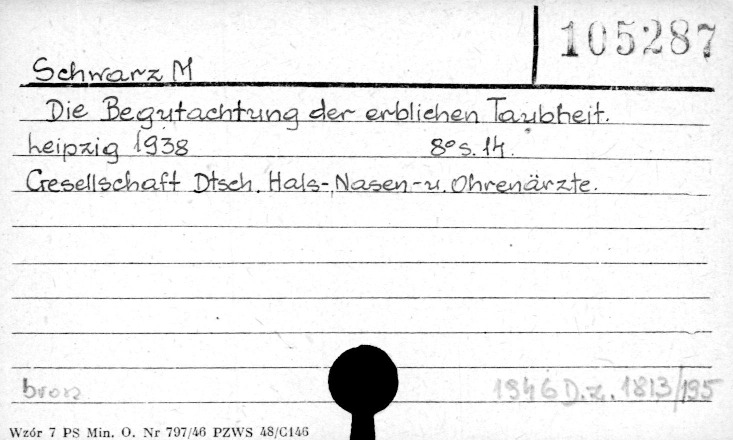 105287
Schwarz M
Die Begutachtung der erblichen Taubheit.
Leipzig 1938 8° s. 14.
Gesellschaft Dtsch. Hals-, Nasen- u. Ohrenärzte.
1946 D.z. 1813/195
Wzór 7 PS Min. O. Nr 797/46 PZWS 48/C146